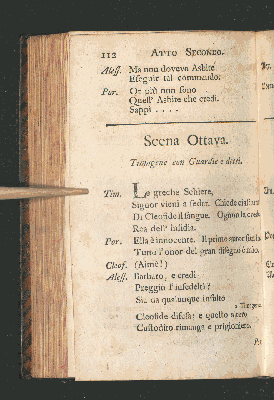 112 ATTO SECONDO.
Aless. Ma non doveva Asbite
Eseguir tal commando.
Por. Or più non sono
Quell' Asbite che credi.
Sappi . . . .
Scena Ottava.
Timogene con Guardie e detti.
Tim. Le greche Schiere,
Signor vieni a sedar. Chiede ciascuna
Di Cleofide il sangue. Ognun la crede
Rea dell' insidia.
Por. Ella è innocente. Il primo autor son io
Tutto l'onor del gran disegno è mio.
Cleof. (Aimè!)
Aless. Barbaro, e credi
Preggio l'infedeltà?
Sia da qualunque insulto
a Timogene
Cleofide difesa; e quello altero
Custodito rimanga e prigioniero.